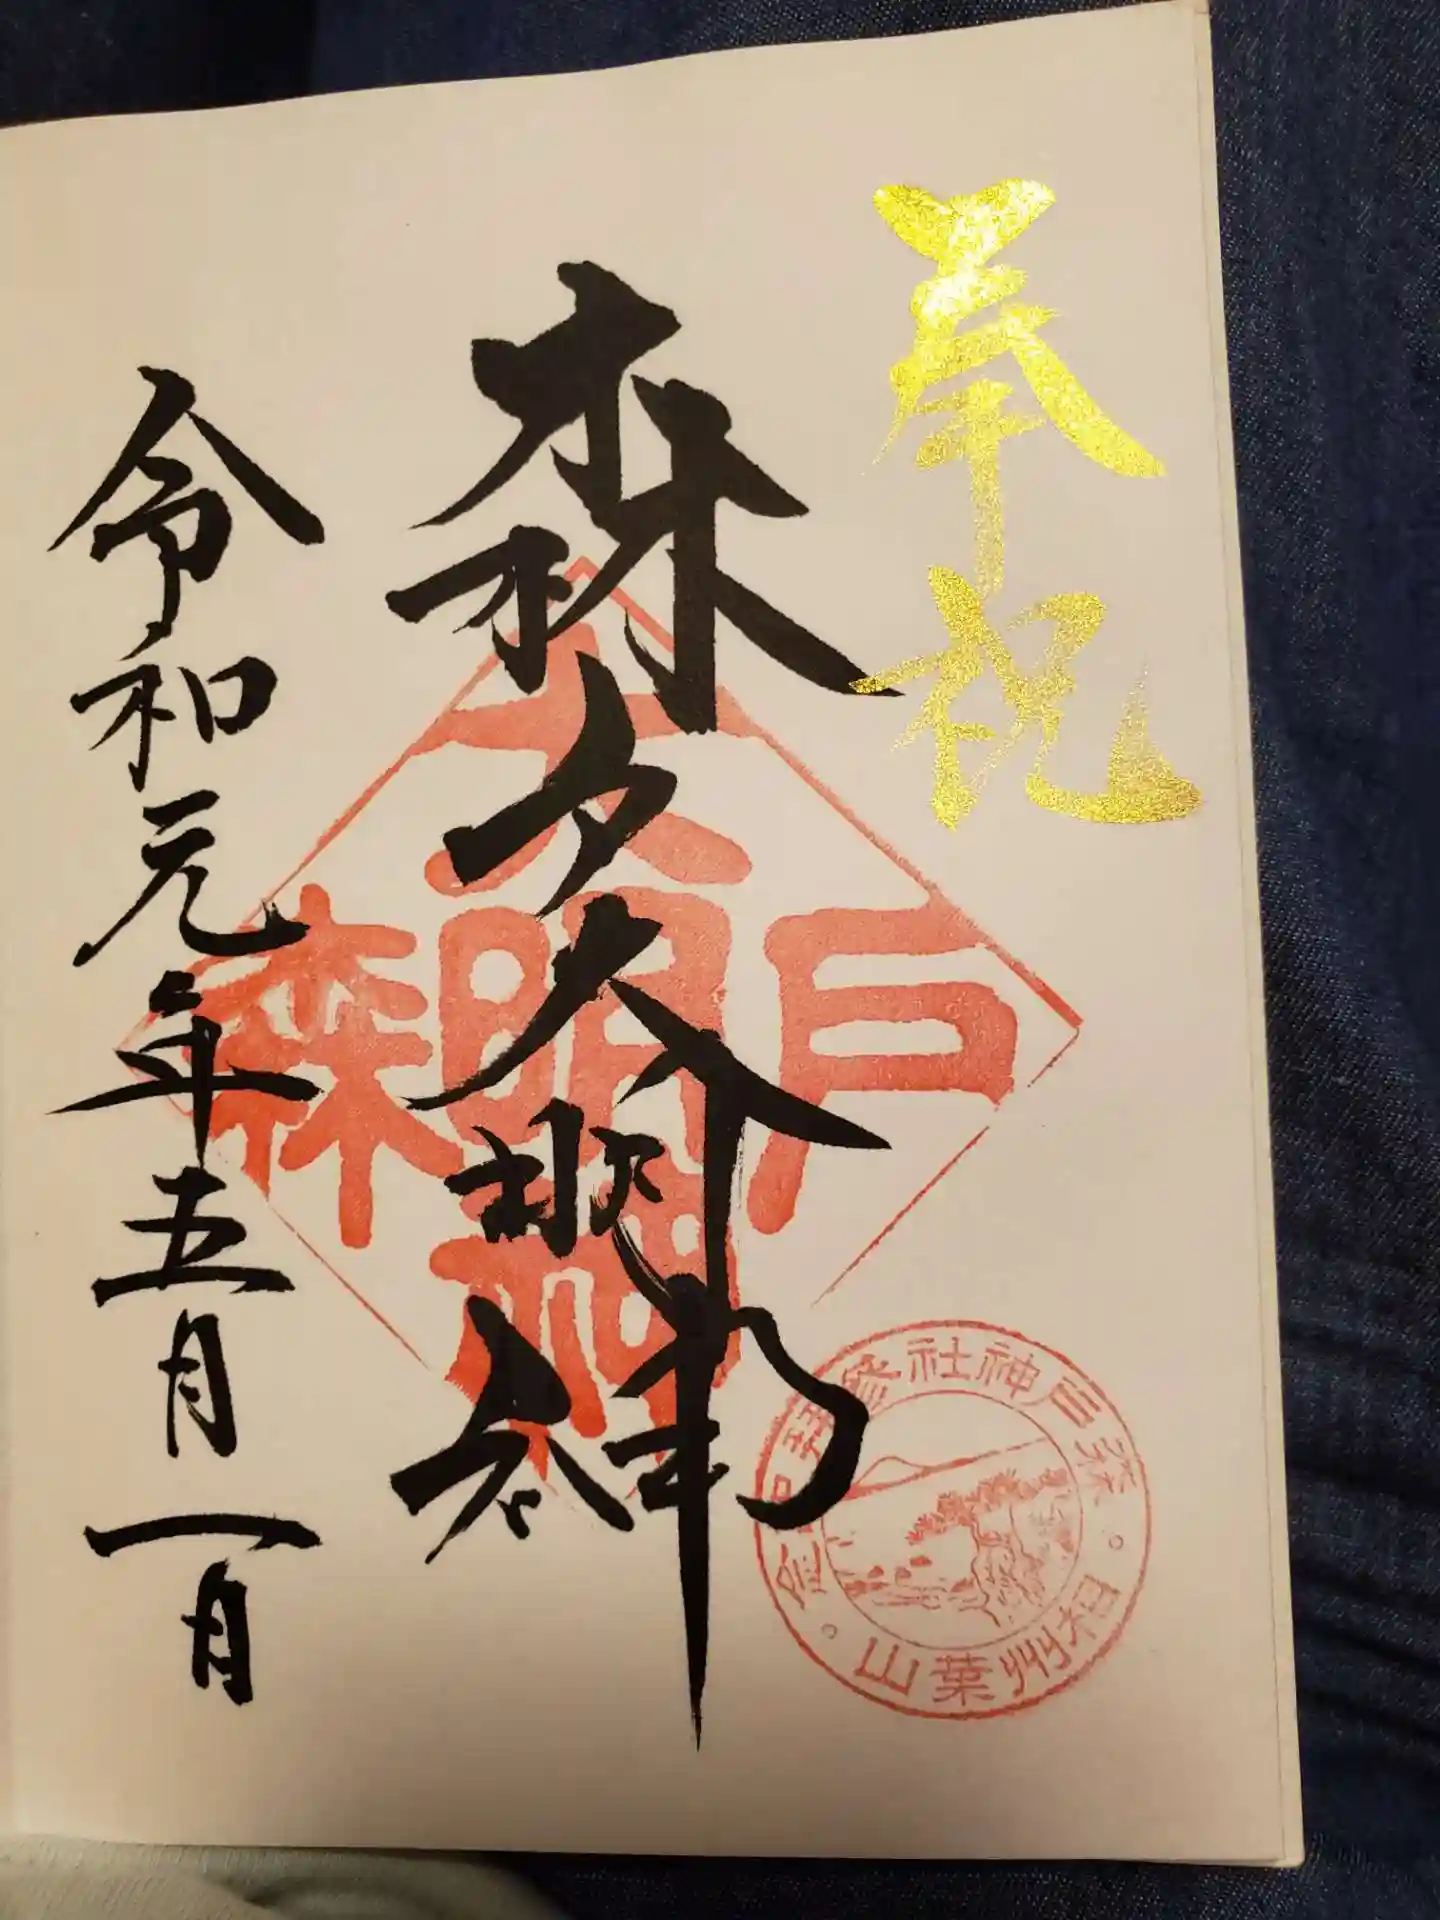 奉祝
森戸大明神
令和元年五月一日
大
森明戸
神
森戸神社参拝記念
相州葉山